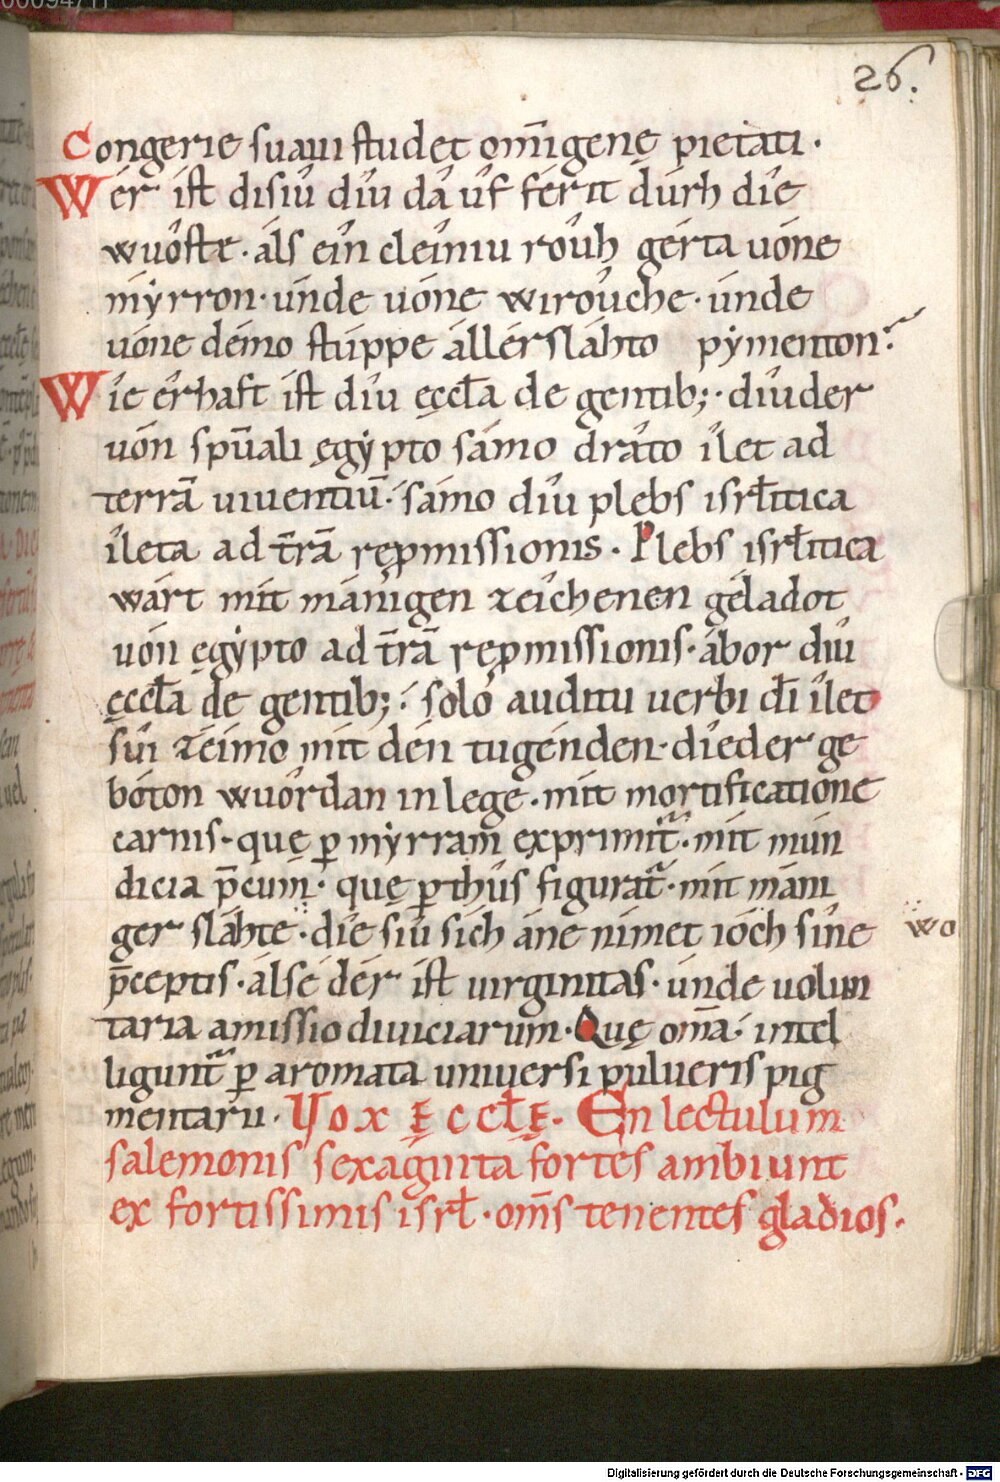 26.
Congerie suaui studet om̄igenę pietati·
Wér ist disiú díu dá úf férit dúrh díe
wuóste· áls eín cleíniu roúh gérta uóne
mýrron· únde uóne wiroúche· únde
uóne démo stúppe állérsláhto pýmenton?
Wíe érhaft ist díu ęccl̄a de gentib;· díuder
uón spūali ęgýpto sámo dráto ílet ad
terrā uiuentiū· sámo díu plebs isrl̄itica
íleta ad t̄rā rępmissionis· Plebs isrl̄itica
wárt mit mánigen zeíchenen géladot
uón ęgýpto ad t̄rā rępmissionis· ábor díu
ęccl̄a de gentib;· soló auditu uerbi dī ílet
súi zéimo mit dén tugénden· díeder ge
bóton wuórdan in lege· mit mortificatione
carnis· quę p mýrram exprimit̄· mit mún
dicia p̄cum· quę p thús figurat̄· mit mání
ger sláhte· díe siú sích áne nímet ióch síne
p̄ceptis· álse dér ist uirginitas· únde uolun
taria amissio diuiciarum· Quę om̄a· intel
ligunt̄ p aromata uniuersi pulueris pig
mentarii· Vox ęccl̄ę· En lectulum
salemonis sexaginta fortes ambiunt
ex fortissimis isrl̄· om̄s tenentes gladios·
wo
Digitalisierung gefördert durch die Deutsche Forschungsgemeinschaft - DFG